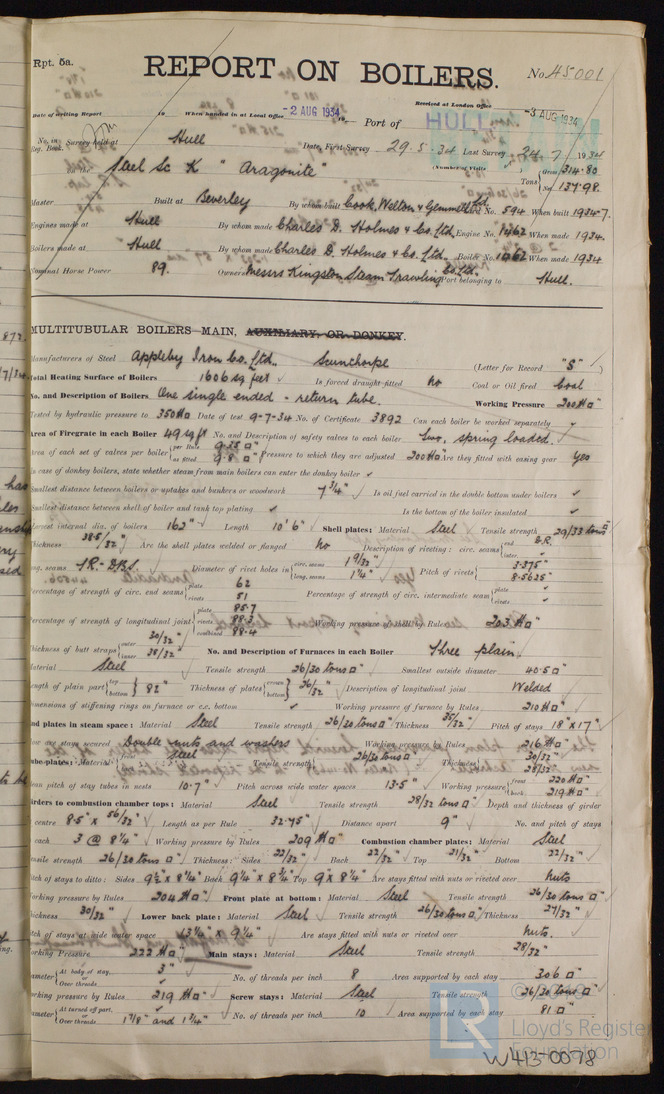 Rpt. 5a.
REPORT ON BOILERS.
No. 45001
Received at London Office
-3 AUG 1934
Date of writing Report 19 When handed in at Local Office -2 AUG 1934 19 Port of HULL
No. in Survey held at Hull Date, First Survey 29.5.34 Last Survey 24.7.1934
Reg. Book.
on the Steel Sc K "Aragonite" (Number of Visits Gross 314.80
Tons Net 137.98.
Master Built at Beverley By whom built Cook, Welton & Gemmell Ltd Yard No. 594 When built 1934-7.
Engines made at Hull By whom made Charles D. Holmes & Co. Ltd., Engine No. 1462 When made 1934.
Boilers made at Hull By whom made Charles D. Holmes & Co. Ltd., Boiler No. 1462 When made 1934
Nominal Horse Power 89. Owners Messrs Kingston Steam Trawling Co Ltd. Port belonging to Hull.
MULTITUBULAR BOILERS MAIN, AUXILIARY, OR DONKEY.
Manufacturers of Steel Appleby Iron Co. Ltd., Scunthorpe (Letter for Record "S")
Total Heating Surface of Boilers 1606 sq feet Is forced draught fitted No Coal or Oil fired Coal
No. and Description of Boilers One single ended - return tube. Working Pressure 200 #□"
Tested by hydraulic pressure to 350 #□ Date of test 9-7-34 No. of Certificate 3892 Can each boiler be worked separately
Area of Firegrate in each Boiler 49 sq ft No. and Description of safety valves to each boiler Two, spring loaded.
Area of each set of valves per boiler per Rule 9.35 □" as fitted 9.8 □" Pressure to which they are adjusted 200 #□ Are they fitted with easing gear yes
In case of donkey boilers, state whether steam from main boilers can enter the donkey boiler
Smallest distance between boilers or uptakes and bunkers or woodwork 7 3/4" Is oil fuel carried in the double bottom under boilers
Smallest distance between shell of boiler and tank top plating Is the bottom of the boiler insulated
Largest internal dia. of boilers 162" Length 10' 6" Shell plates: Material Steel Tensile strength 29/33 tons □"
Thickness 38.5/32" Are the shell plates welded or flanged No Description of riveting: circ. seams end D.R. inter.
long. seams T.R. D.B.S. Diameter of rivet holes in circ. seams 1 9/32" long. seams 1 1/4" Pitch of rivets 3.375" 8.5625"
Percentage of strength of circ. end seams plate 62 rivets 51 Percentage of strength of circ. intermediate seam plate rivets
Percentage of strength of longitudinal joint plate 85.7 rivets 88.3 combined 88.4 Working pressure of shell by Rules 203 #□"
Thickness of butt straps outer 30/32" inner 38/32" No. and Description of Furnaces in each Boiler Three plain
Material Steel Tensile strength 26/30 tons □" Smallest outside diameter 40.5"
Length of plain part top bottom 82" Thickness of plates crown bottom 26/32" Description of longitudinal joint Welded
Dimensions of stiffening rings on furnace or c.c. bottom Working pressure of furnace by Rules 210 #□"
End plates in steam space: Material Steel Tensile strength 26/30 tons □" Thickness 35/32" Pitch of stays 18" x 17"
How are stays secured Double nuts and washers Working pressure by Rules 216 #□"
Tube plates: Material Steel Tensile strength 26/30 tons □" Thickness 30/32" 28/32"
Mean pitch of stay tubes in nests 10.7" Pitch across wide water spaces 13.5" Working pressure front 220 #□" back 219 #□"
Girders to combustion chamber tops: Material Steel Tensile strength 28/32 tons □" Depth and thickness of girder
at centre 8.5" x 56/32" Length as per Rule 32.75" Distance apart 9" No. and pitch of stays
in each 3 @ 8 1/4" Working pressure by Rules 209 #□" Combustion chamber plates: Material Steel
Tensile strength 26/30 tons □" Thickness: Sides 22/32" Back 22/32" Top 21/32" Bottom 22/32"
Pitch of stays to ditto: Sides 9 1/2" x 8 1/4" Back 9 1/4" x 8 3/4" Top 9" x 8 1/4" Are stays fitted with nuts or riveted over Nuts
Working pressure by Rules 204 #□" Front plate at bottom: Material Steel Tensile strength 26/30 tons □"
Thickness 30/32" Lower back plate: Material Steel Tensile strength 26/30 tons □" Thickness 27/32"
Pitch of stays at wide water space 13 1/4" x 9 1/4" Are stays fitted with nuts or riveted over Nuts.
Working Pressure 222 #□" Main stays: Material Steel Tensile strength 28/32"
Diameter At body of stay, or Over threads 3" No. of threads per inch 8 Area supported by each stay 306 □"
Working pressure by Rules 219 #□" Screw stays: Material Steel Tensile strength 26/30 tons □"
Diameter At turned off part, or Over threads 1 7/8" and 1 3/4" No. of threads per inch 10 Area supported by each stay 81 □"
LR
Lloyd's Register
Foundation
W413-0078